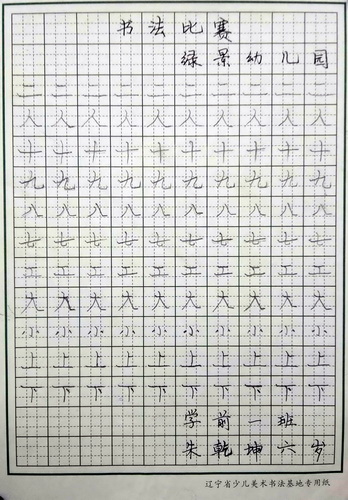 书法比赛
绿景幼儿园
二二二二二二二二二二
人人人人人人人人人人
十十十十十十十十十十
九九九九九九九九九九
八八八八八八八八八八
七七七七七七七七七七
工工工工工工工工工工
大大大大大大大大大大
小小小小小小小小小小
上上上上上上上上上上
下下下下下下下下下下
学前一班
朱乾坤六岁
辽宁省少儿美术书法基地专用纸